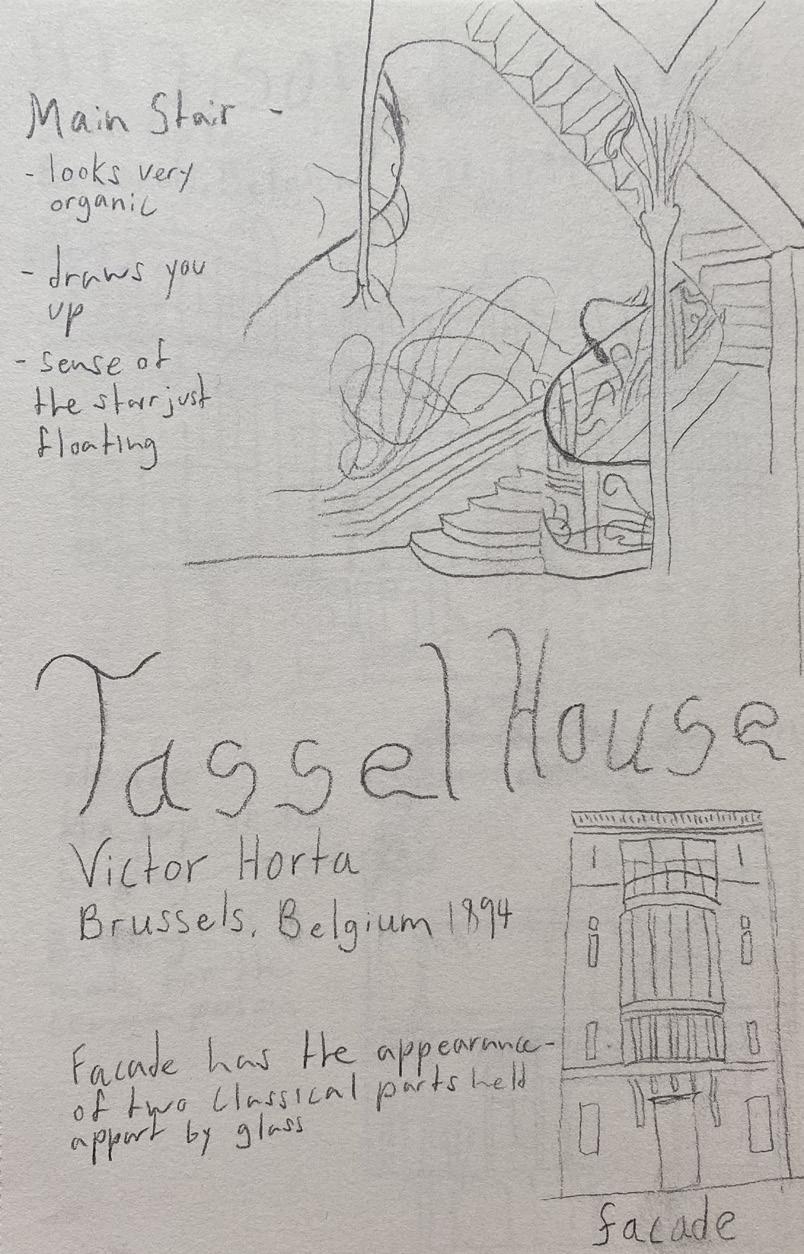 Main Stair -
- looks very
organic
- draws you
up
- sense of
the stair just
floating
Tassel House
Victor Horta
Brussels, Belgium 1894
Facade has the appearance-
of two classical parts held
appart by glass
facade